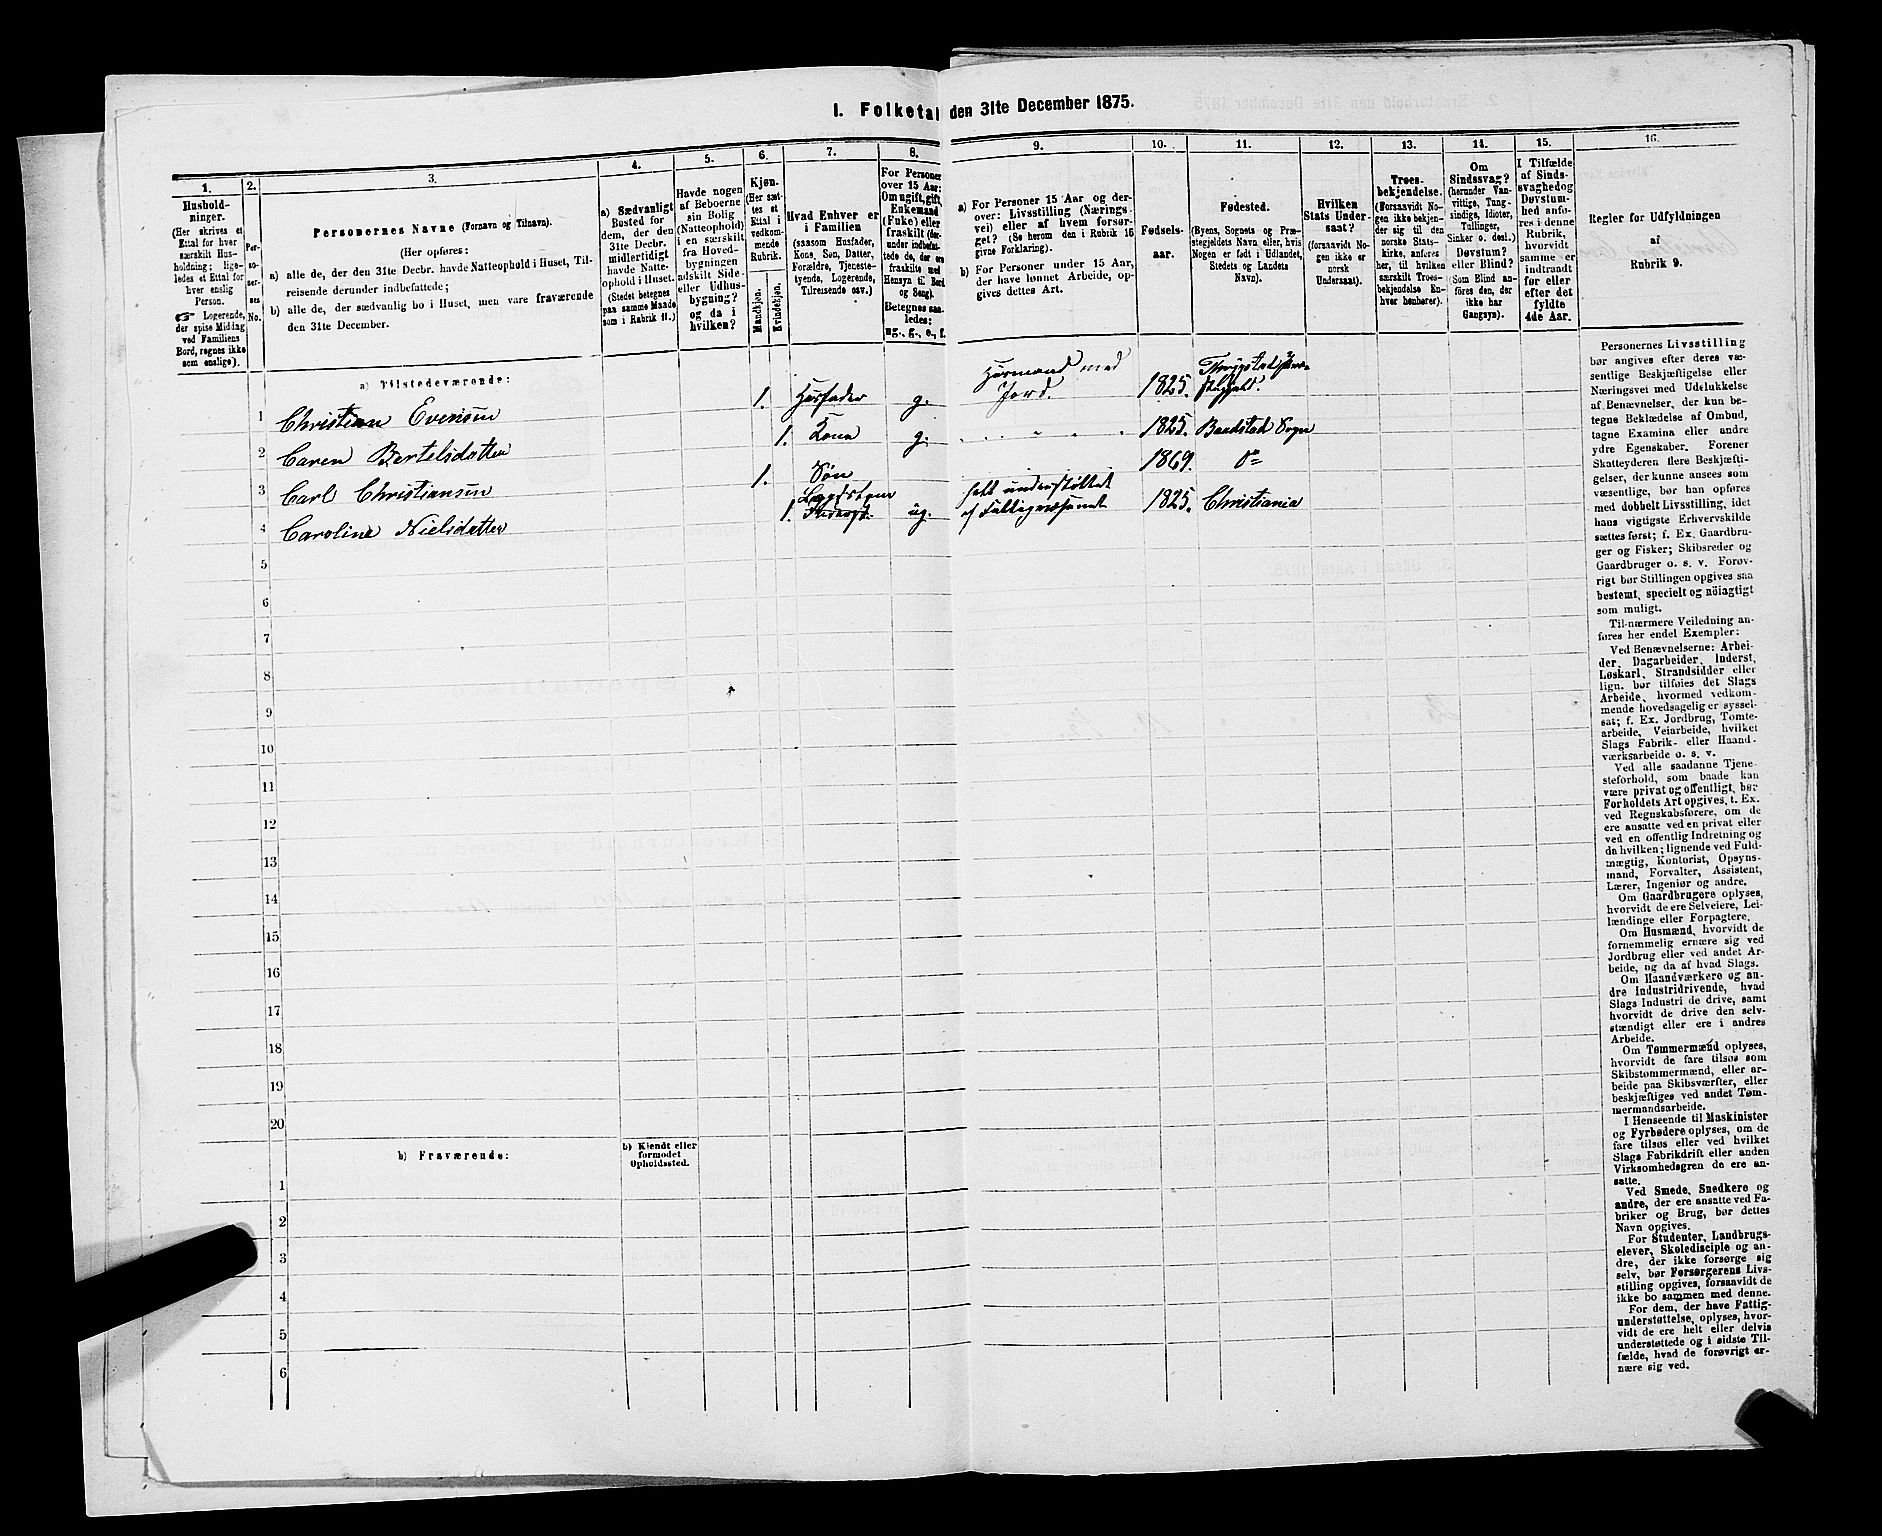 I. Folketal den 31te December 1875.
1.
Hushold-
ninger.
(Her skrives et
Ettal for hver
særskilt Hus-
holdning; lige-
ledes et Ettal for
hver enslig
Person.
☞ Logerende,
der spise Middag
ved Familiens
Bord, regnes ikke
som enslige).
2.
Per-
so-
ner-
nes
No.
3.
Personernes Navne (Fornavn og Tilnavn).
(Her opføres:
a) alle de, der den 31te Decbr. havde Natteophold i Huset, Til-
reisende derunder indbefattede;
b) alle de, der sædvanlig bo i Huset, men vare fraværende
den 31te December.
4.
a) Sædvanligt
Bosted for
dem, der den
31te Decbr.
midlertidigt
havde Natte-
ophold i Huset.
(Stedet betegnes
paa samme Maade
som i Rubrik 11.)
5.
Havde nogen
af Beboerne
sin Bolig
(Natteophold)
i en særskilt
fra Hoved-
bygningen
adskilt Side-
eller Udhus-
bygning?
og da i
hvilken?
6.
Kjøn.
(Her sæt-
tes et
Ettal i
vedkom-
mende
Rubrik.
Mandkjøn.
Kvindekjøn.
7.
Hvad Enhver er
i Familien
(saasom Husfader,
Kone, Søn, Datter,
Forældre, Tjeneste-
tyende, Logerende,
Tilreisende osv.)
8.
For Personer
over 15 Aar:
Om ugift, gift,
Enkemand
(Enke) eller
fraskilt (der-
under indbefat-
tede de, der ere
fraskilte med
Hensyn til Bord
og Seng).
Betegnes saa-
ledes:
ug., g., e., f.
9.
a) For Personer 15 Aar og der-
over: Livsstilling (Nærings-
vei) eller af hvem forsør-
get? (Se herom den i Rubrik 16
givne Forklaring).
b) For Personer under 15 Aar,
der have lønnet Arbeide, op-
gives dettes Art.
10.
Fødsels-
aar.
11.
Fødested.
(Byens, Sognets og Præ-
stegjeldets Navn eller, hvis
Nogen er født i Udlandet,
Stedets og Landets
Navn).
12.
Hvilken
Stats Under-
saat?
(forsaavidt No-
gen ikke er
norsk
Undersaat).
13.
Troes-
bekjendelse.
(Forsaavidt No-
gen ikke bekjen-
der sig til den
norske Stats-
kirke, anføres
her, til hvilken
særskilt Troes-
bekjendelse En-
hver henhører).
14.
Om
Sindssvag?
(herunder Van-
vittige, Tung-
sindige, Idioter,
Tullinger,
Sinker o. desl.)
Døvstum?
eller Blind?
(Som Blind an-
føres den, der
ikke har
Gangsyn).
15.
I Tilfælde
af Sinds-
svaghed og
Døvstum-
hed anfø-
res i denne
Rubrik,
hvorvidt
samme er
indtraadt
før eller
efter det
fyldte
4de Aar.
16.
Regler for Udfyldningen
af
Rubrik 9.
a) Tilstedeværende:
1 Christian Evensen 1. Husfader g. Husmand med Jord. 1825.
2 Caren Bertelsdatter 1. Kone g. „ „ „ „ 1825. Baastad Sogn
3 Carl Christiansen 1. Søn 1869. do
4 Caroline Nielsdatter 1. ug. helt understøttet af Fattigvæsenet 1825. Christiania
5
6
7
8
9
10
11
12
13
14
15
16
17
18
19
20
b) Fraværende:
b) Kjendt eller
formodet
Opholdssted.
1
2
3
4
5
6
Personernes Livsstilling
bør angives efter deres væ-
sentlige Beskjæftigelse eller
Næringsvei med Udelukkelse
af Benævnelser, der kun be-
tegne Beklædelse af Ombud,
tagne Examina eller andre
ydre Egenskaber. Forener
Skatteyderen flere Beskjæfti-
gelser, der kunne ansees som
væsentlige, bør han opføres
med dobbelt Livsstilling, idet
hans vigtigste Erhvervskilde
sættes først; f. Ex. Gaardbru-
ger og Fisker; Skibsreder og
Gaardbruger o. s. v. Forøv-
rigt bør Stillingen opgives saa
bestemt, specielt og nøiagtigt
som muligt.
Til nærmere Veiledning an-
føres her endel Exempler:
Ved Benævnelserne: Arbei-
der, Dagarbeider, Inderst,
Løskarl, Strandsidder eller
lign. bør tilføies det Slags
Arbeide, hvormed vedkom-
mende hovedsagelig er syssel-
sat; f. Ex. Jordbrug, Tomte-
arbeide, Veiarbeide, hvilket
Slags Fabrik- eller Haand-
værksarbeide o. s. v.
Ved alle saadanne Tjene-
steforhold, som baade kan
være privat og offentligt, bør
Forholdets Art opgives, t. Ex.
ved Regnskabsførere, om de
ere ansatte ved en privat eller
ved en offentlig Indretning og
da hvilken; lignende ved Fuld-
mægtig, Kontorist, Opsyns-
mand, Forvalter, Assistent,
Lærer, Ingeniør og andre.
Om Gaardbrugere oplyses,
hvorvidt de ere Selveiere, Lei-
lændinge eller Forpagtere.
Om Husmænd, hvorvidt de
fornemmelig ernære sig ved
Jordbrug eller ved andet Ar-
beide, og da af hvad Slags.
Om Haandværkere og an-
dre Industridrivende, hvad
Slags Industri de drive, samt
hvorvidt de drive den selv-
stændigt eller ere i andres
Arbeide.
Om Tømmermænd oplyses,
hvorvidt de fare tilsøs som
Skibstømmermænd, eller ar-
beide paa Skibsværfter, eller
beskjæftiges ved andet Tøm-
mermandsarbeide.
I Henseende til Maskinister
og Fyrbødere oplyses, om de
fare tilsøs eller ved hvilket
Slags Fabrikdrift eller anden
Virksomhedsgren de ere an-
satte.
Ved Smede, Snedkere og
andre, der ere ansatte ved Fa-
briker og Brug, bør dettes
Navn opgives.
For Studenter, Landbrugs-
elever, Skoledisciple og an-
dre, der ikke forsørge sig
selv, bør Forsørgerens Livs-
stilling opgives, forsaavidt de
ikke bo sammen med denne.
For dem, der have Fattig-
understøttelse, oplyses, hvor-
vidt de ere helt eller delvis
understøttede og i sidste Til-
fælde, hvad de forøvrigt er-
nære sig ved.